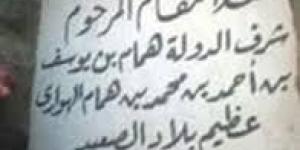 هذا مقام المرحوم
شرف الدولة همام بن يوسف
بن أحمد بن محمد بن همام الهوارى
عظيم بلاد الصعيد